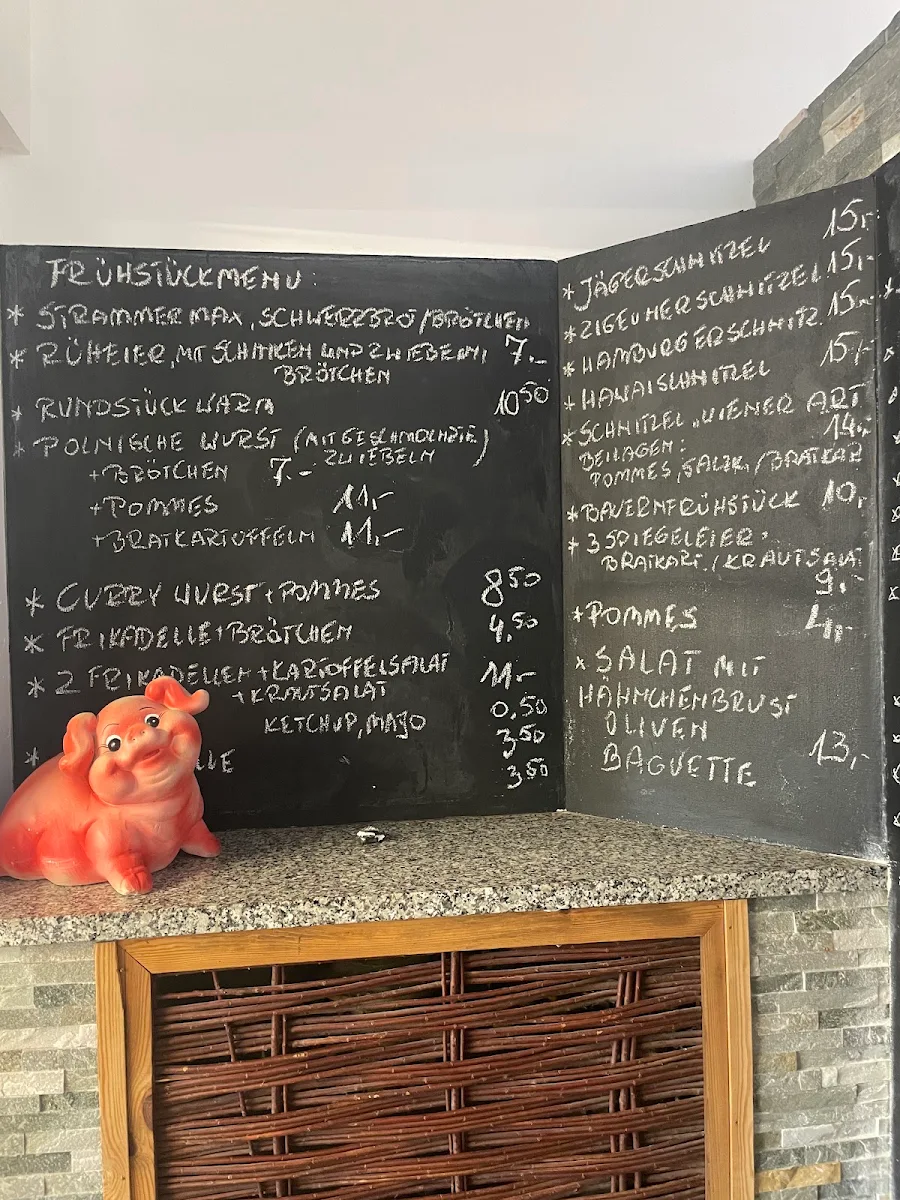 FRÜHSTÜCKMENU:
* STRAMMER MAX, SCHWERZBROT/BRÖTCHEN
* RÜHEIER, MIT SCHINKEN UND ZWIEBELN 7.-
BRÖTCHEN
* RUNDSTÜCK WARM 10 50
* POLNISCHE WURST (MIT GESCHMOLZTE)
ZWIEBELN
+BRÖTCHEN 7.-
+POMMES 11,-
+BRATKARTOFFELN 11,-
* CURRY WURST + POMMES 8 50
* FRIKADELLE+BRÖTCHEN 4,50
* 2 FRIKADELLEN +KARTOFFELSALAT
+KRAUTSALAT 11-
KETCHUP, MAJO 0,50
3 50
* LLE 3 50
* JÄGERSCHNITZEL 15,-
* ZIGEUNERSCHNITZEL 15,-
* HAMBURGERSCHNITZ. 15,-
* HAWAISCHNITZEL 15,-
* SCHNITZEL „WIENER ART
BEILAGEN: 14,-
POMMES, SALZK./BRATKAR
* BAUERNFRÜHSTÜCK 10,
* 3 SPIEGELEIER,
BRATKART./KRAUTSALAT
9,-
* POMMES 4,-
* SALAT MIT
HÄHNCHENBRUST
OLIVEN
BAGUETTE 13,-